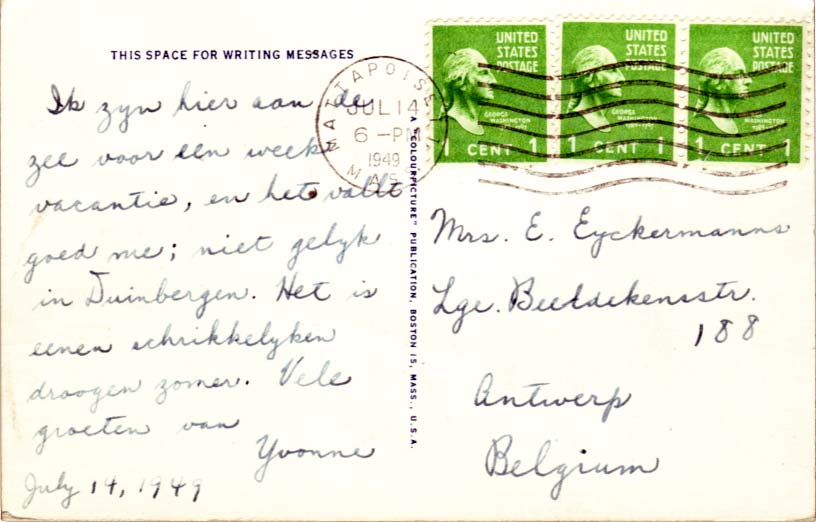 THIS SPACE FOR WRITING MESSAGES
Ik zyn hier aan de
zee voor een week
vacantie, en het vallt
goed me; niet gelyk
in Duinbergen. Het is
eenen schrikkelyken
droogen zomer. Vele
groeten van
Yvonne
July 14, 1949
A "COLOURPICTURE" PUBLICATION, BOSTON 15, MASS., U.S.A.
MATTAPOISETT
JUL 14
6 -PM
1949
MASS.
UNITED STATES POSTAGE
GEORGE WASHINGTON
1789-1797
1 CENT 1
UNITED STATES POSTAGE
GEORGE WASHINGTON
1789-1797
1 CENT 1
UNITED STATES POSTAGE
GEORGE WASHINGTON
1789-1797
1 CENT 1
Mrs. E. Eyckermanns
Lge. Beeldekensstr.
188
Antwerp
Belgium